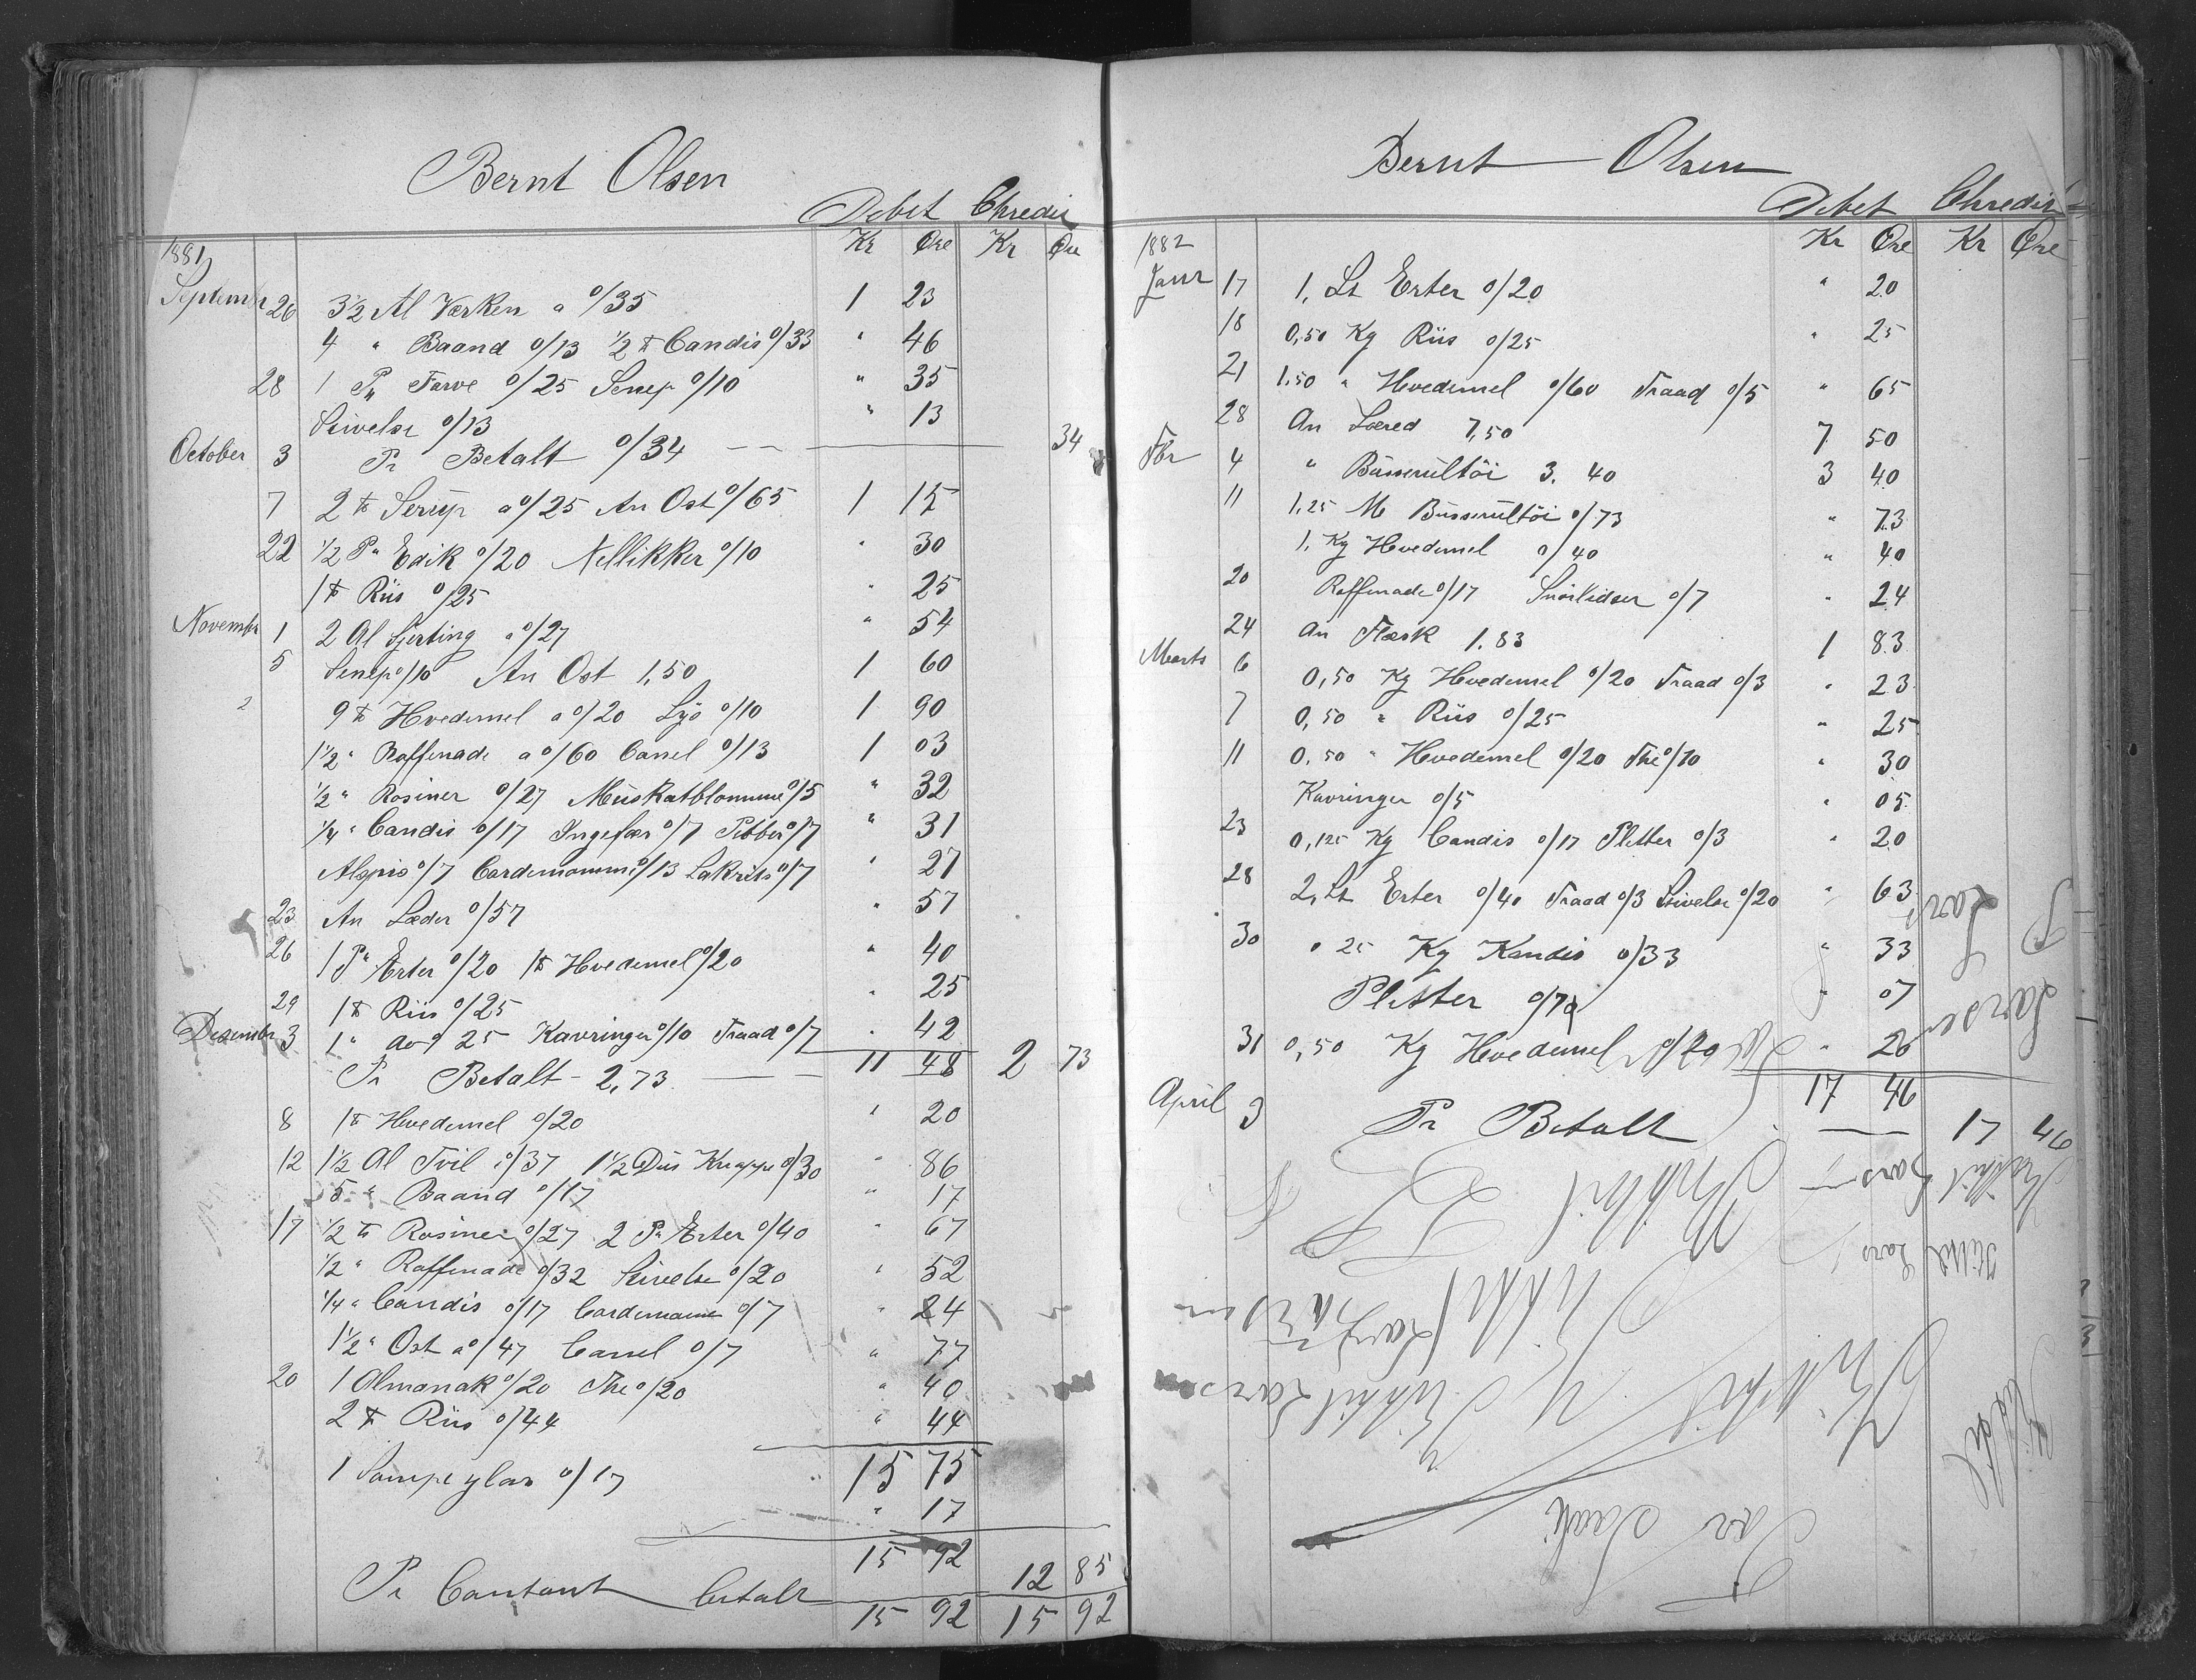 Bernt Olsen
Debet Chredit
1881 Kr Øre Kr Øre
Septembr 26 3½ Al Værken a o/35 1 23
4 " Baand o/13 ½ ℔ Candis o/33 " 46
28 1 P" Farve o/25 Senep o/10 " 35
Stivelse o/13 " 13
October 3 Pr Betalt o/34 — 34
7 2 ℔ Serup a o/25 An Ost o/65 1 15
22 ½ P" Edik o/20 Nellikker o/10 " 30
1 ℔ Riis o/25 " 25
Novembr 1 2 Al Sjerting a o/27 " 54
5 Senep o/10 An Ost 1,50 1 60
9 ℔ Hvedemel a o/20 Lys o/10 1 90
1½ " Raffenade a o/60 Canel o/13 1 03
½ " Rosiner o/27 Muskatblomme o/5 " 32
¼ " Candis o/17 Ingefær o/7 Pebber o/7 " 31
Alspis o/7 Cardemomme o/13 Lakrits o/7 " 27
23 An Læder o/57 " 57
26 1 P" Erter o/20 1 ℔ Hvedemel o/20 " 40
29 1 ℔ Riis o/25 " 25
Desember 3 1 " do o/25 Kavringer o/10 Traad o/7 " 42
Pr Betalt - 2,73 — 11 48 2 73
8 1 ℔ Hvedemel o/20 " 20
12 1½ Al Tvil o/37 1½ Dus Knappe o/30 " 86
5 " Baand o/17 " 17
17 ½ ℔ Rosiner o/27 2 P" Erter o/40 " 67
½ " Raffenade o/32 Stivelse o/20 " 52
¼ " Candis o/17 Cardemome o/7 " 24
1½ " Ost a o/47 Canel o/7 " 77
20 1 Almanak o/20 The o/20 " 40
2 ℔ Riis o/44 " 44
15 75
1 Lampeglas o/17
" 17
15 92
Pr Contant betalt 12 85
15 92 15 92
Bernt Olsen
Debet Chredit
1882 Kr Øre Kr Øre
Janr 17 1, Lt Erter o/20 " 20
18 0,50 Kg Riis o/25 " 25
21 1,50 " Hvedemel o/60 Traad o/5 " 65
28 An Læred 7,50 7 50
Fbr 4 " Busserultöi 3. 40 3 40
11 1,25 M Busserultöi o/73 " 73
1, Kg Hvedemel o/40 " 40
20 Raffenade o/17 Snörlidser o/7 " 24
24 An Flæsk 1.83 1 83
Marts 6 0,50 Kg Hvedemel o/20 Traad o/3 " 23
7 0,50 " Riis o/25 " 25
11 0,50 " Hvedemel o/20 The o/10 " 30
Kavringer o/5 " 05
23 0,125 Kg Candis o/17 Pletter o/3 " 20
28 2, Lt Erter o/40 Traad o/3 Stivelse o/20 " 63
30 0 25 Kg Kandis o/33 " 33
Pletter o/7 " 07
31 0,50 Kg Hvedemel o/20 " 20
17 46
April 3 Pr Betalt — 17 46
Larsen